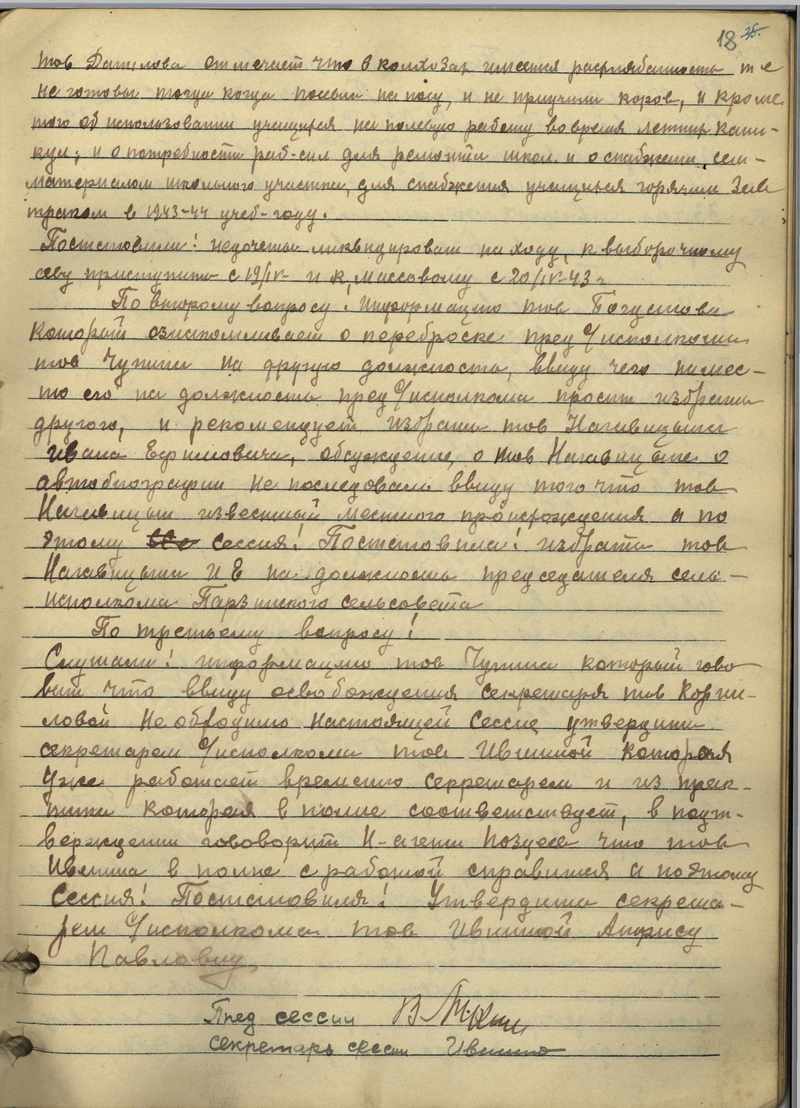 18 25.
тов Данилова отмечает что в колхозах имеится расхлябаность т е
не готовы тогда когда посевы на носу, и не приучили коров, и кроме
того об использовании учащихся на полевую работу во время летних кани-
кул; и о потребности раб-сил для ремонта школ и о снабжении сем-
материалом школьного участка, для снабжения учащихся горячим зав
траком в 1943-44 учеб-году.
Постановили! недочеты ликвидировать на ходу, к выборочному
севу приступить с 19/IV- и к массовому с 20/IV-43 г
По второму вопросу! Информацию тов
который ознакомливает о переброске пред с/исполкома
тов Чупина на другую должность, ввиду чего на мес-
то его на должность пред с/исполкома просит избрать
другого, и рекомендует избрать тов Нагавицына
Ивана Ефимовича, обсуждение, о тов Нагавицыне о
автобиографии не последовали ввиду того что тов
Нагавицын известный местного происхождения а по
этому все сессия! Постановила! избрать тов
Нагавицына И Е на должность председателя сель-
исполкома Парзинского сельсовета
По третьему вопросу!
Слушали! информацию тов Чупина который гово
рит что ввиду освобождения секретаря тов Корни-
ловой необходимо настоящей Сессие утвердить
секретарем с/исполкома тов Ившиной которая
уже работает времено секретарем и из прак-
тики которая в полне соответствует, в подт-
верждении гововорит Н-агент Поздеев что тов
Ившина в полне с работой справится а поэтому
Сессия! Постановила! Утвердить секрета-
рем с/исполкома тов Ившиной Анфису
Павловну
Пред сессии
секретарь сессии Ившина